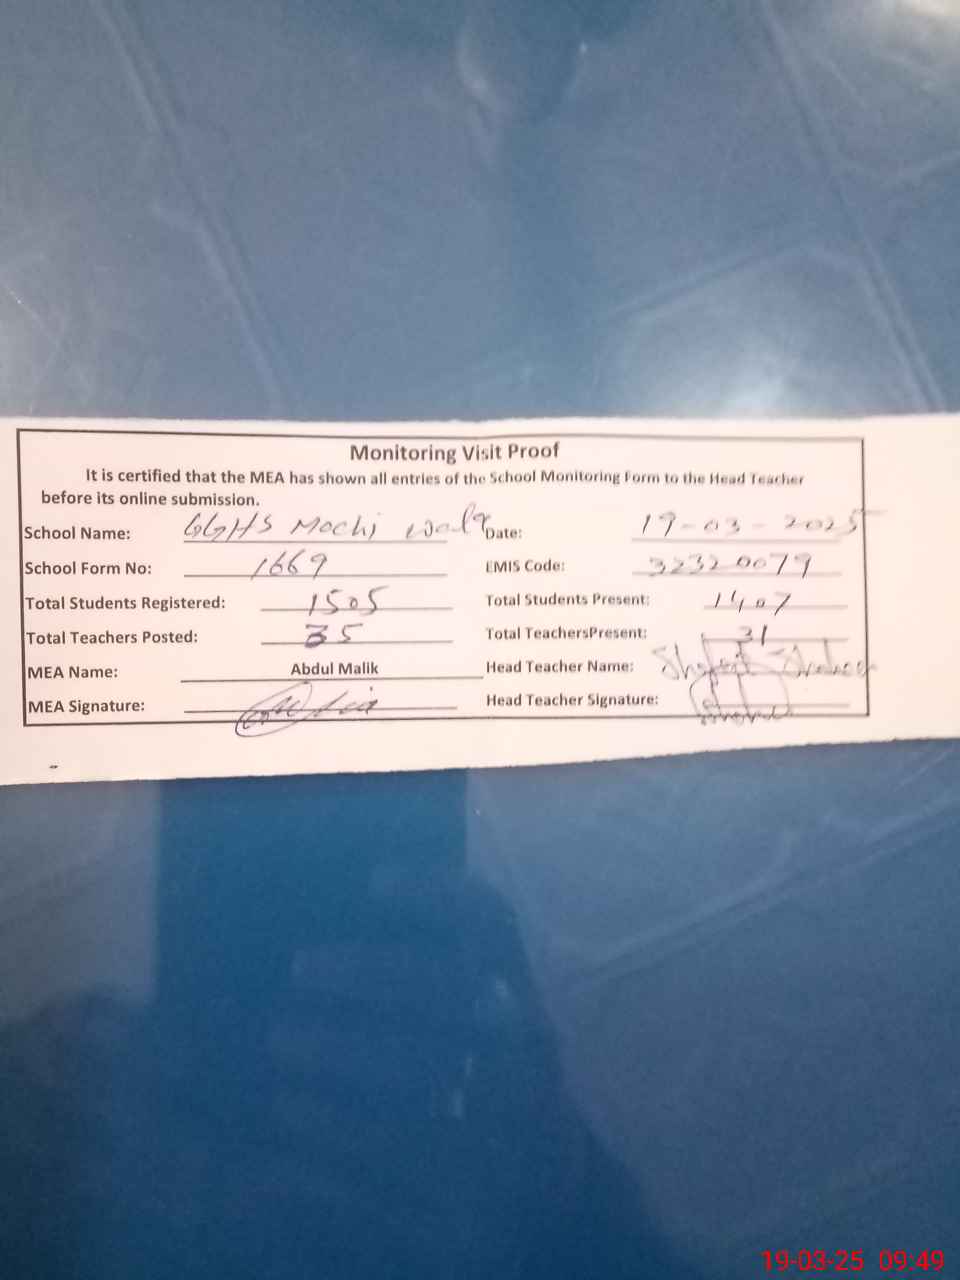 Monitoring Visit Proof
It is certified that the MEA has shown all entries of the School Monitoring Form to the Head Teacher
before its online submission.
School Name: GGHS Mochi Wala Date: 19-03-2025
School Form No: 1669 EMIS Code: 32320079
Total Students Registered: 1505 Total Students Present: 1407
Total Teachers Posted: 35 Total TeachersPresent: 31
MEA Name: Abdul Malik Head Teacher Name: Shaheen
MEA Signature: Head Teacher Signature:
19-03-25 09:49